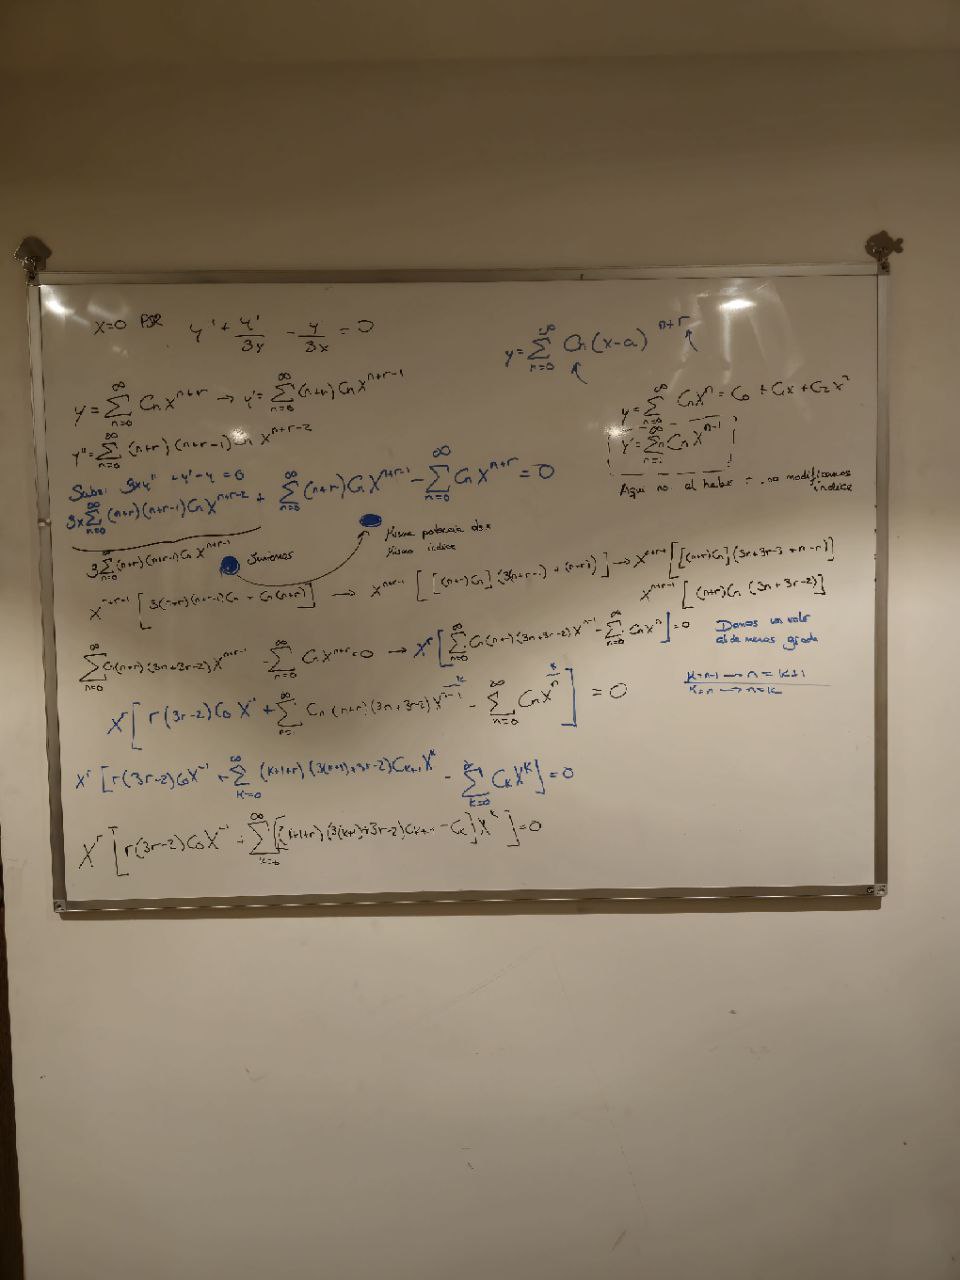 X=0 PSR y'' + y'/3x - y/3x = 0
y = ∑_{n=0}^{∞} Cn(x-a)^{n+r}
y = ∑_{n=0}^{∞} Cn X^{n+r} → y' = ∑_{n=0}^{∞} (n+r) Cn X^{n+r-1}
y = ∑_{n=0}^{∞} CnX^n = C0 + C1X + C2X^2
y'' = ∑_{n=0}^{∞} (n+r)(n+r-1) Cn X^{n+r-2}
y' = ∑_{n=1}^{∞} n Cn X^{n-1}
3xy'' + y' - y = 0
Aqui no al haber r no modificamos índice
3x∑_{n=0}^{∞} (n+r)(n+r-1)Cn X^{n+r-2} + ∑_{n=0}^{∞} (n+r)Cn X^{n+r-1} - ∑_{n=0}^{∞} Cn X^{n+r} = 0
3∑_{n=0}^{∞} (n+r)(n+r-1)Cn X^{n+r-1}
Juntamos
Misma potencia de x
Mismo índice
X^{n+r-1} [3(n+r)(n+r-1)Cn + Cn(n+r)] → X^{n+r-1} [[(n+r)Cn](3(n+r-1) + (n+r))] → X^{n+r-1} [[(n+r)Cn](3n+3r-3+n-n)]
X^{n+r-1} [(n+r)Cn (3n+3r-2)]
∑_{n=0}^{∞} Cn(n+r)(3n+3r-2)X^{n+r-1} - ∑_{n=0}^{∞} Cn X^{n+r} = 0 → X^r [∑_{n=0}^{∞} Cn(n+r)(3n+3r-2)X^{n-1} - ∑_{n=0}^{∞} Cn X^n] = 0
Damos un valor
al de menos grado
X^r [r(3r-2)C0 X^{-1} + ∑_{n=1}^{∞} Cn(n+r)(3n+3r-2)X^{n-1} - ∑_{n=0}^{∞} Cn X^n] = 0
k=n-1 → n=k+1
k=n → n=k
X^r [r(3r-2)C0X^{-1} + ∑_{k=0}^{∞} (k+1+r)(3(k+1)+3r-2)C_{k+1}X^k - ∑_{k=0}^{∞} CkX^k] = 0
X^r [r(3r-2)C0X^{-1} + ∑_{k=0}^{∞} [(k+1+r)(3(k+1)+3r-2)C_{k+1} - Ck]X^k] = 0